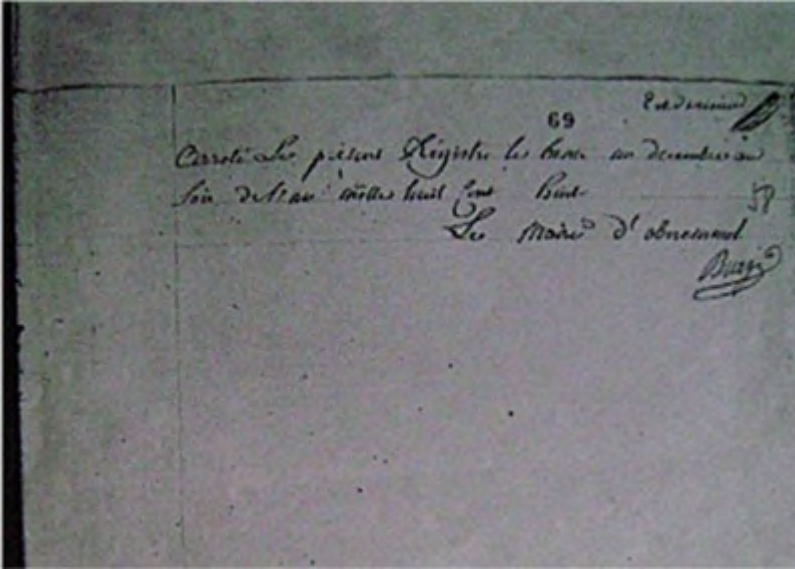 69
le présent Régistre le trente un décembre au
Soir de l'an mille huit Cent huit
58
Le Maire d'